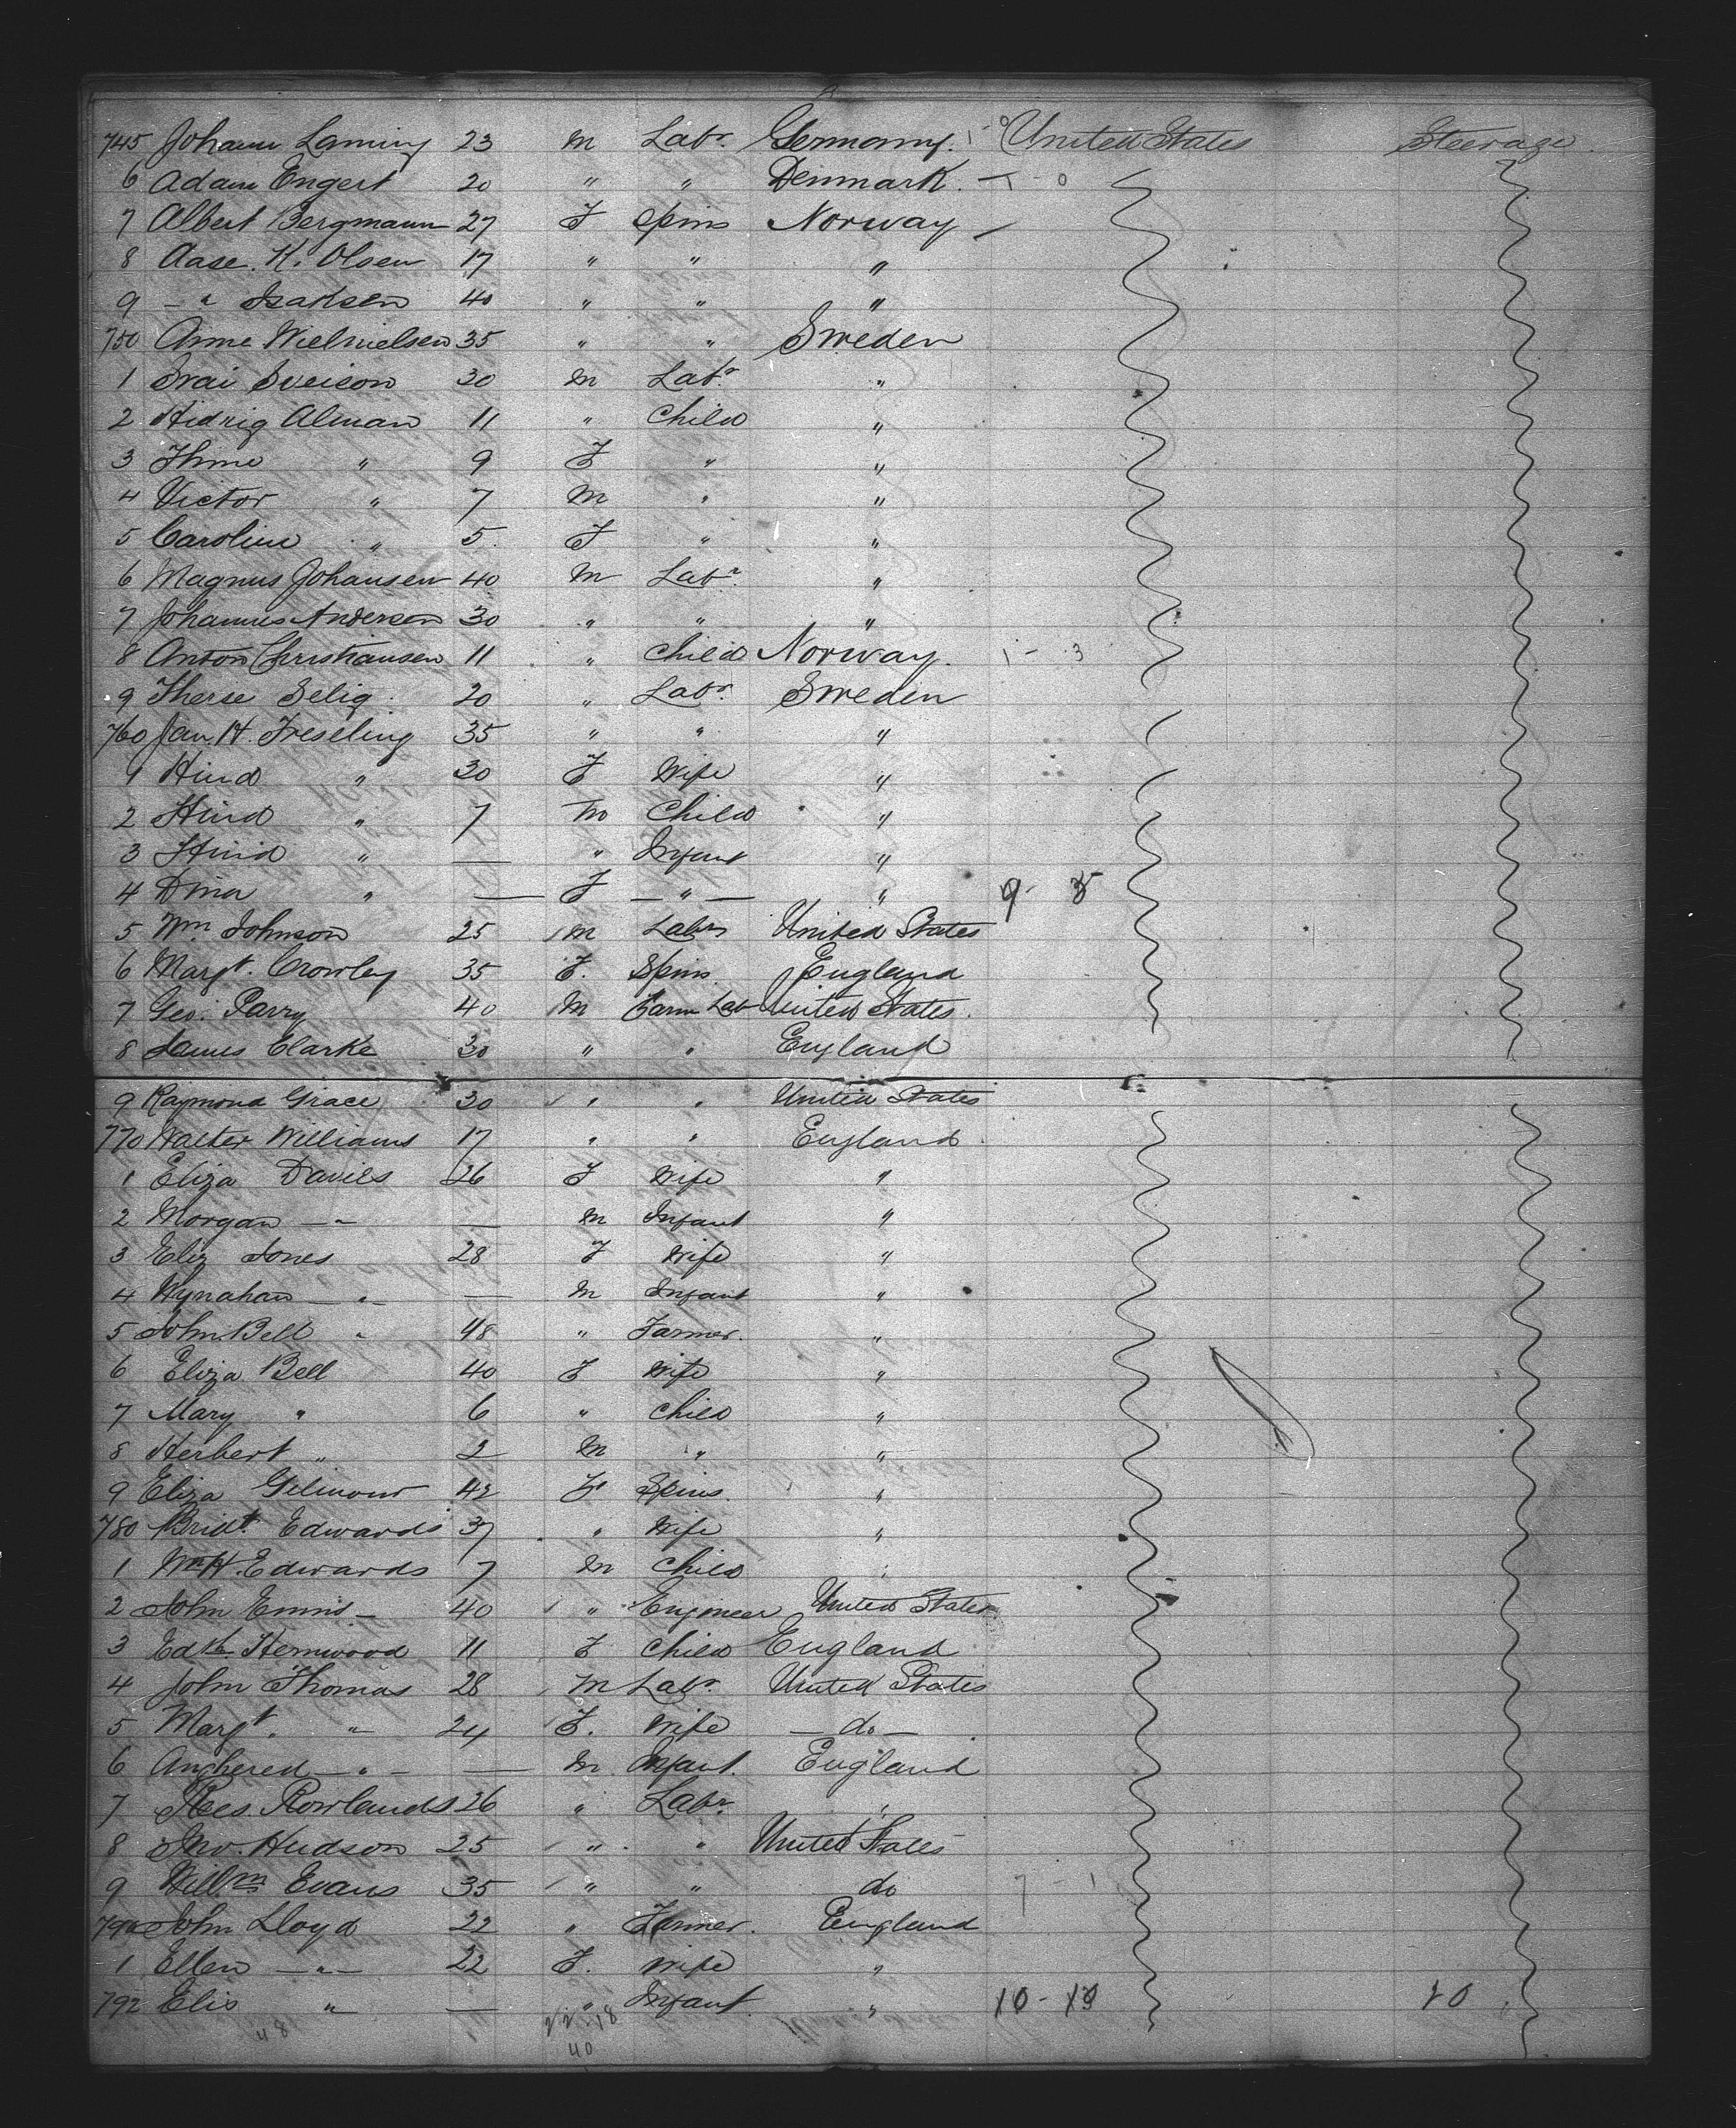 745 Johann Laming 23 M Labr. Germany. 1-0 United States Steerage.
6 Adam Engert 20 " " Denmark. 1-0
7 Albert Bergmann 27 F Spins Norway
8 Aase. K. Olsen 17 " " "
9 - " Isaksen 40 " " "
750 Anne Wielnielsen 35 " " Sweden
1 Sveison 30 M Labr. "
2 Hidrig Alman 11 " Child "
3 Thime " 9 F " "
4 Victor " 7 M " "
5 Caroline " 5 F " "
6 Magnus Johansen 40 M Labr. "
7 Johannes Anderson 30 " " "
8 Anton Christiansen 11 " Child Norway. 1-3
9 Therse Selig 20 " Labr. Sweden
760 Jan. H. Freseling 35 " " "
1 Hind " 30 F Wife "
2 Hind " 7 M Child "
3 Hind " — " Infant "
4 Dina " — F — " — " 9-3
5 Wm. Johnson 25 M Labr United States
6 Margt. Crowley 35 F. Spins. England
7 Geo. Parry 40 M Farm Lab United States.
8 James Clarke 30 " " England
9 Raymond Grace 30 " " United States
770 Walter Williams 17 " " England
1 Eliza Davies 26 F Wife "
2 Morgan — " — M Infant "
3 Eliz Jones 28 F Wife "
4 Wynahan — " — — M Infant "
5 John Bell " 48 " Farmer. "
6 Eliza Bell 40 F Wife "
7 Mary " 6 " Child "
8 Herbert " 2 M " "
9 Eliza Gilmour 42 F Spins. "
780 Bridt. Edwards 37 " Wife "
1 Wm H. Edwards 7 M Child "
2 John Ennis — 40 " Engineer United States
3 Edth Hernwood 11 F Child England
4 John Thomas 28 M Labr. United States
5 Margt. " 24 F. Wife — do —
6 Anghered — " — — M Infant. England
7 Rees Rowlands 26 " Labr. "
8 Jno. Hudson 25 " " United States
9 Willm Evans 35 " " do 7-1
790 John Lloyd 22 " Farmer. England
1 Ellen — " — 22 F. Wife "
792 Elis " — " Infant "
48 22 18
40